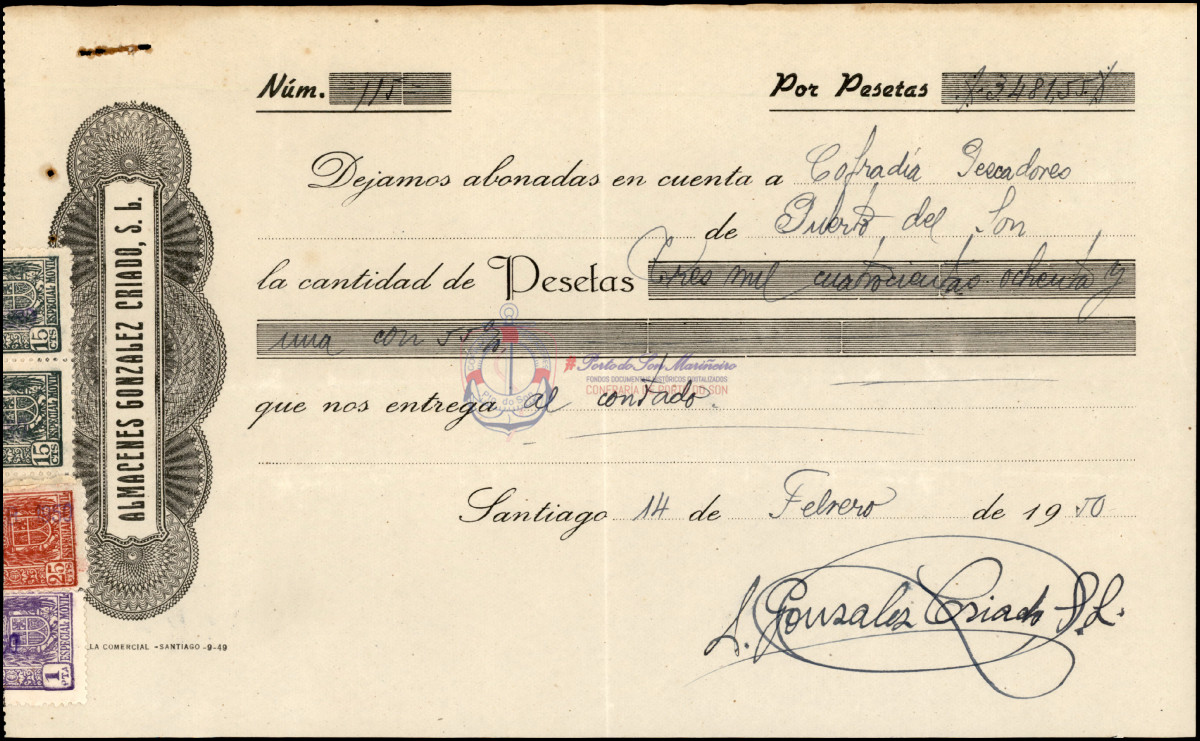 Núm. 115
Por Pesetas 3.481,55
Dejamos abonadas en cuenta a Cofradía Pescadores
de Puerto del Son
la cantidad de Pesetas tres mil cuatrocientas ochenta y
una con 55
que nos entrega al contado.
Santiago 14 de Febrero de 1950
González Criado S.L.
ALMACENES GONZALEZ CRIADO, S. L.
LA COMERCIAL - SANTIAGO - 9-49
15 CTS ESPECIAL MOVIL
15 CTS ESPECIAL MOVIL
25 CTS ESPECIAL MOVIL
1 PTA ESPECIAL MOVIL
#Porto do Son Mariñeiro
FONDOS DOCUMENTAIS HISTÓRICOS DIXITALIZADOS
CONFRARÍA DE PORTO DO SON